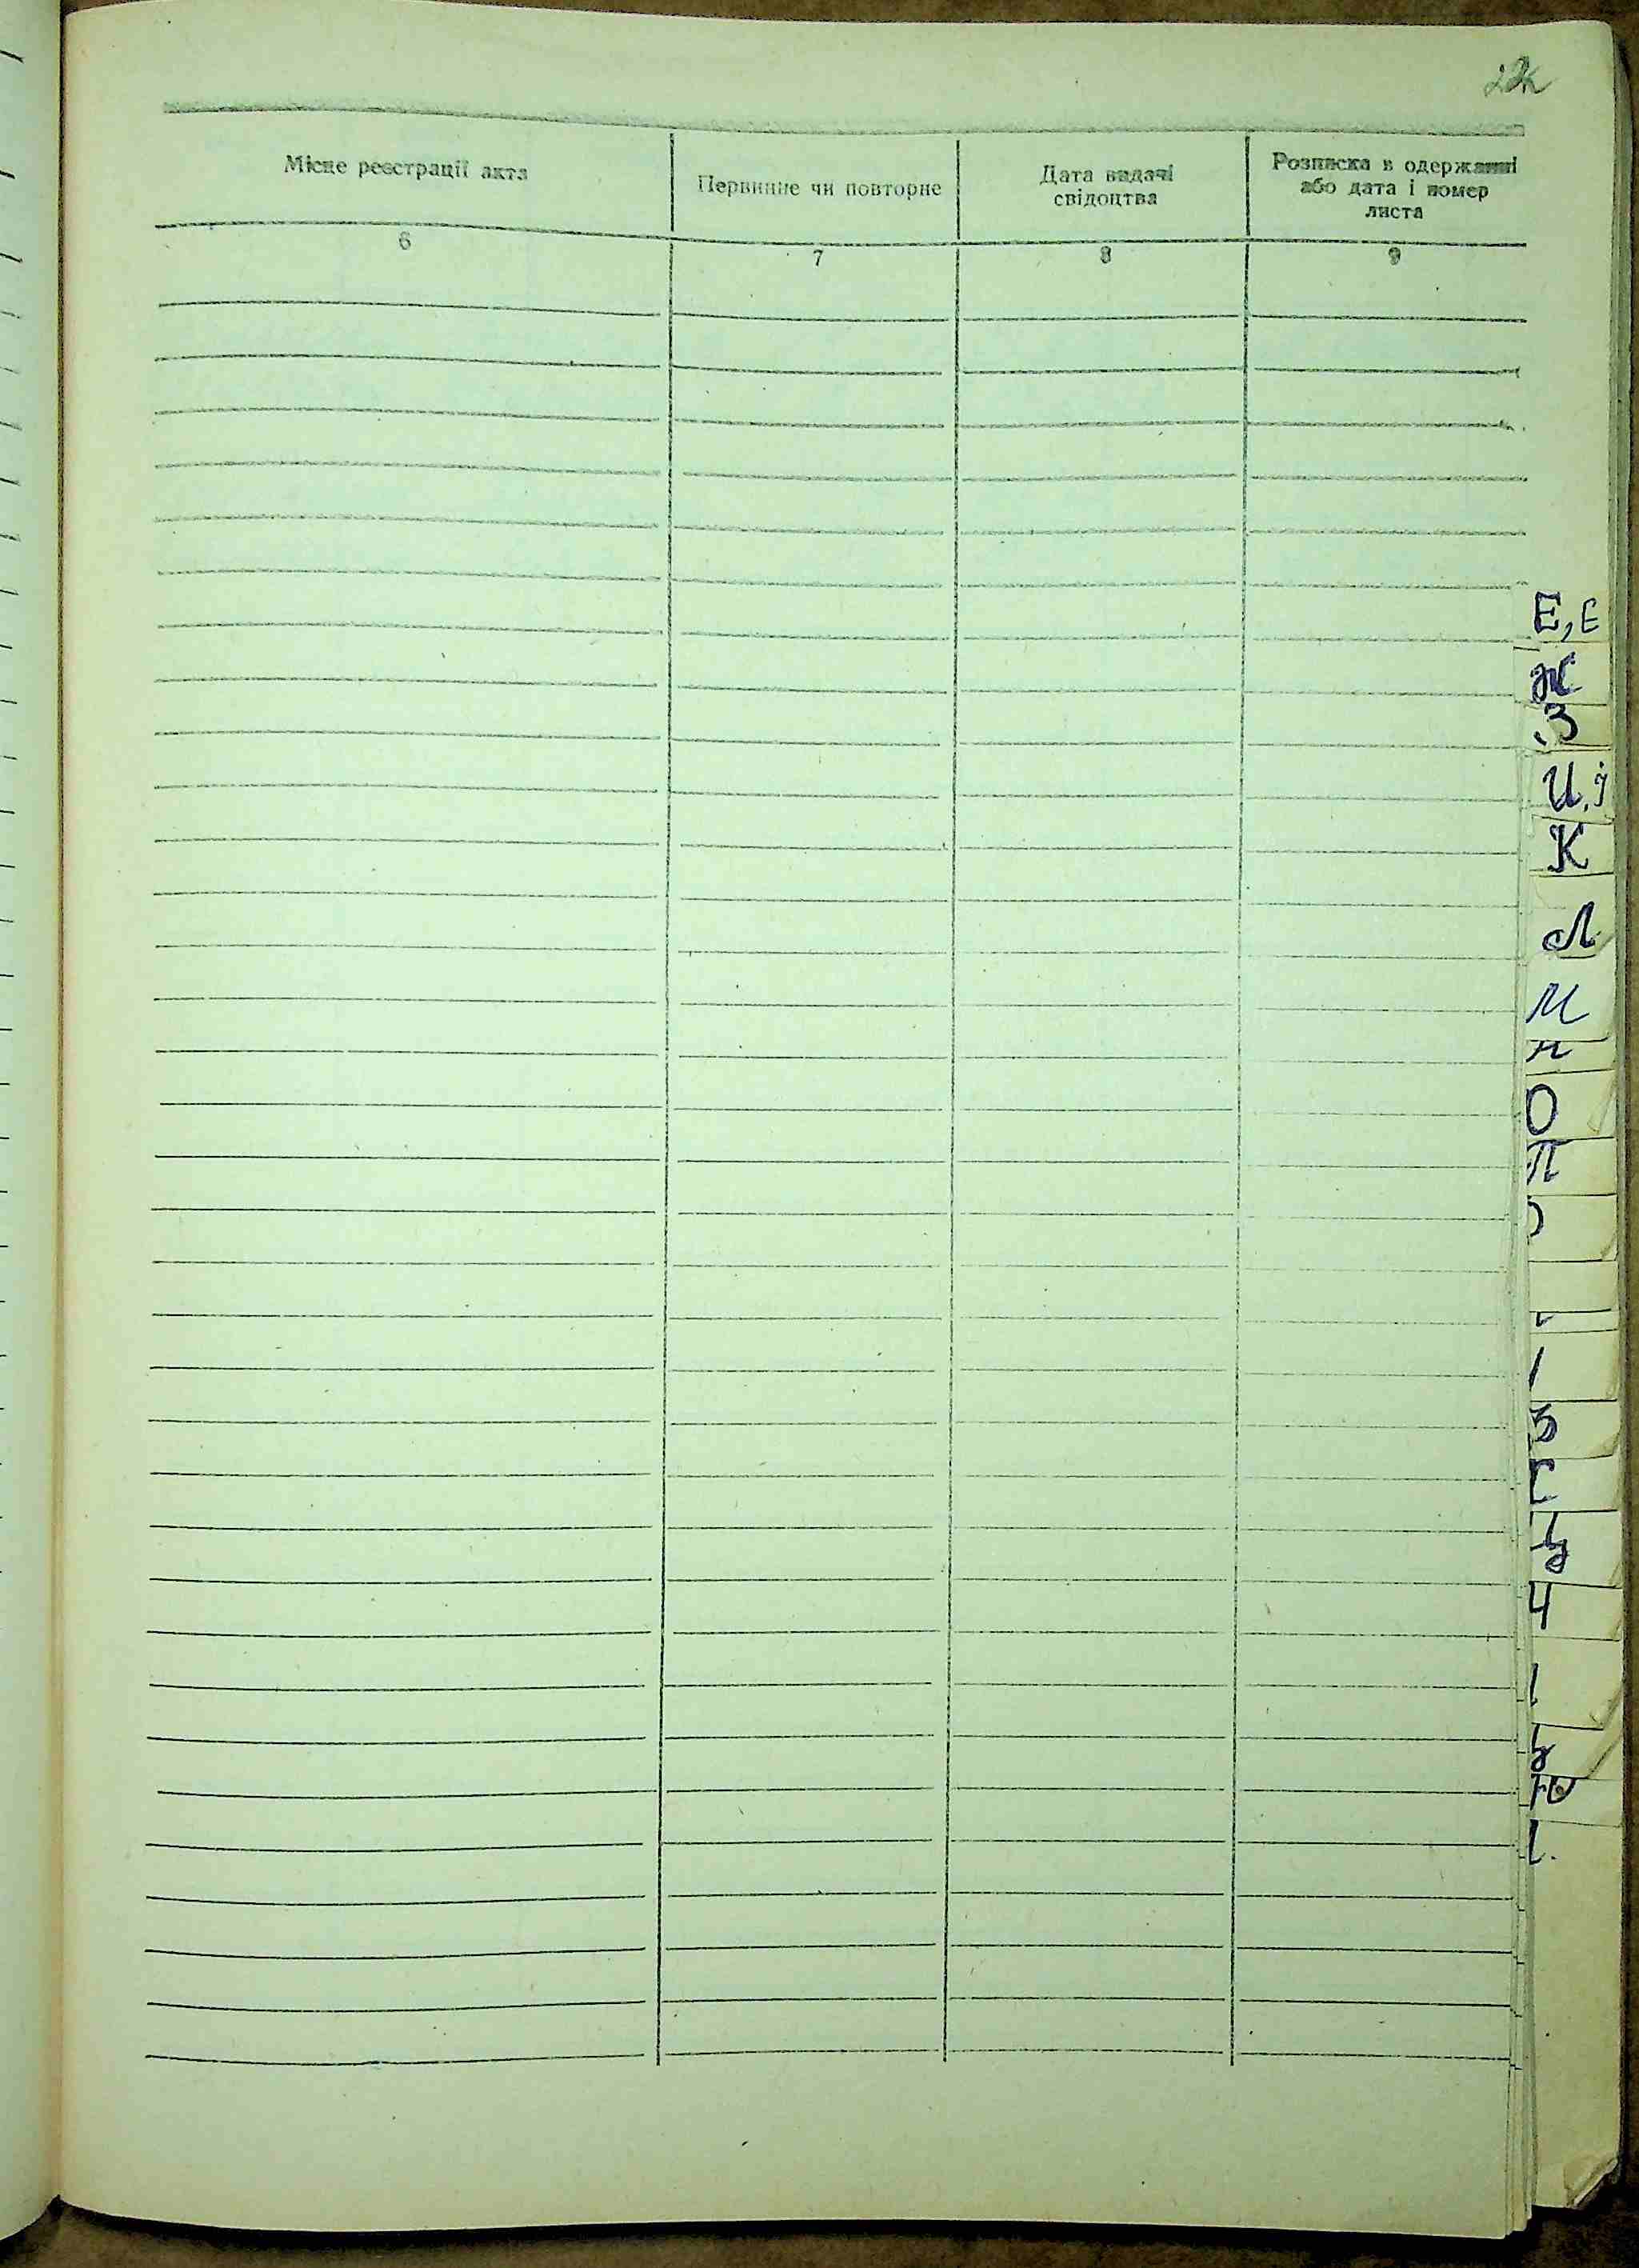 Місце реєстрації акта
Первинне чи повторне
Дата видачі
свідоцтва
Розписка в одержанні
або дата і номер
листа
6
7
8
9
Е, Є
Ж
З
И, і
К
Л
М
Н
О
П
Ч
Ю